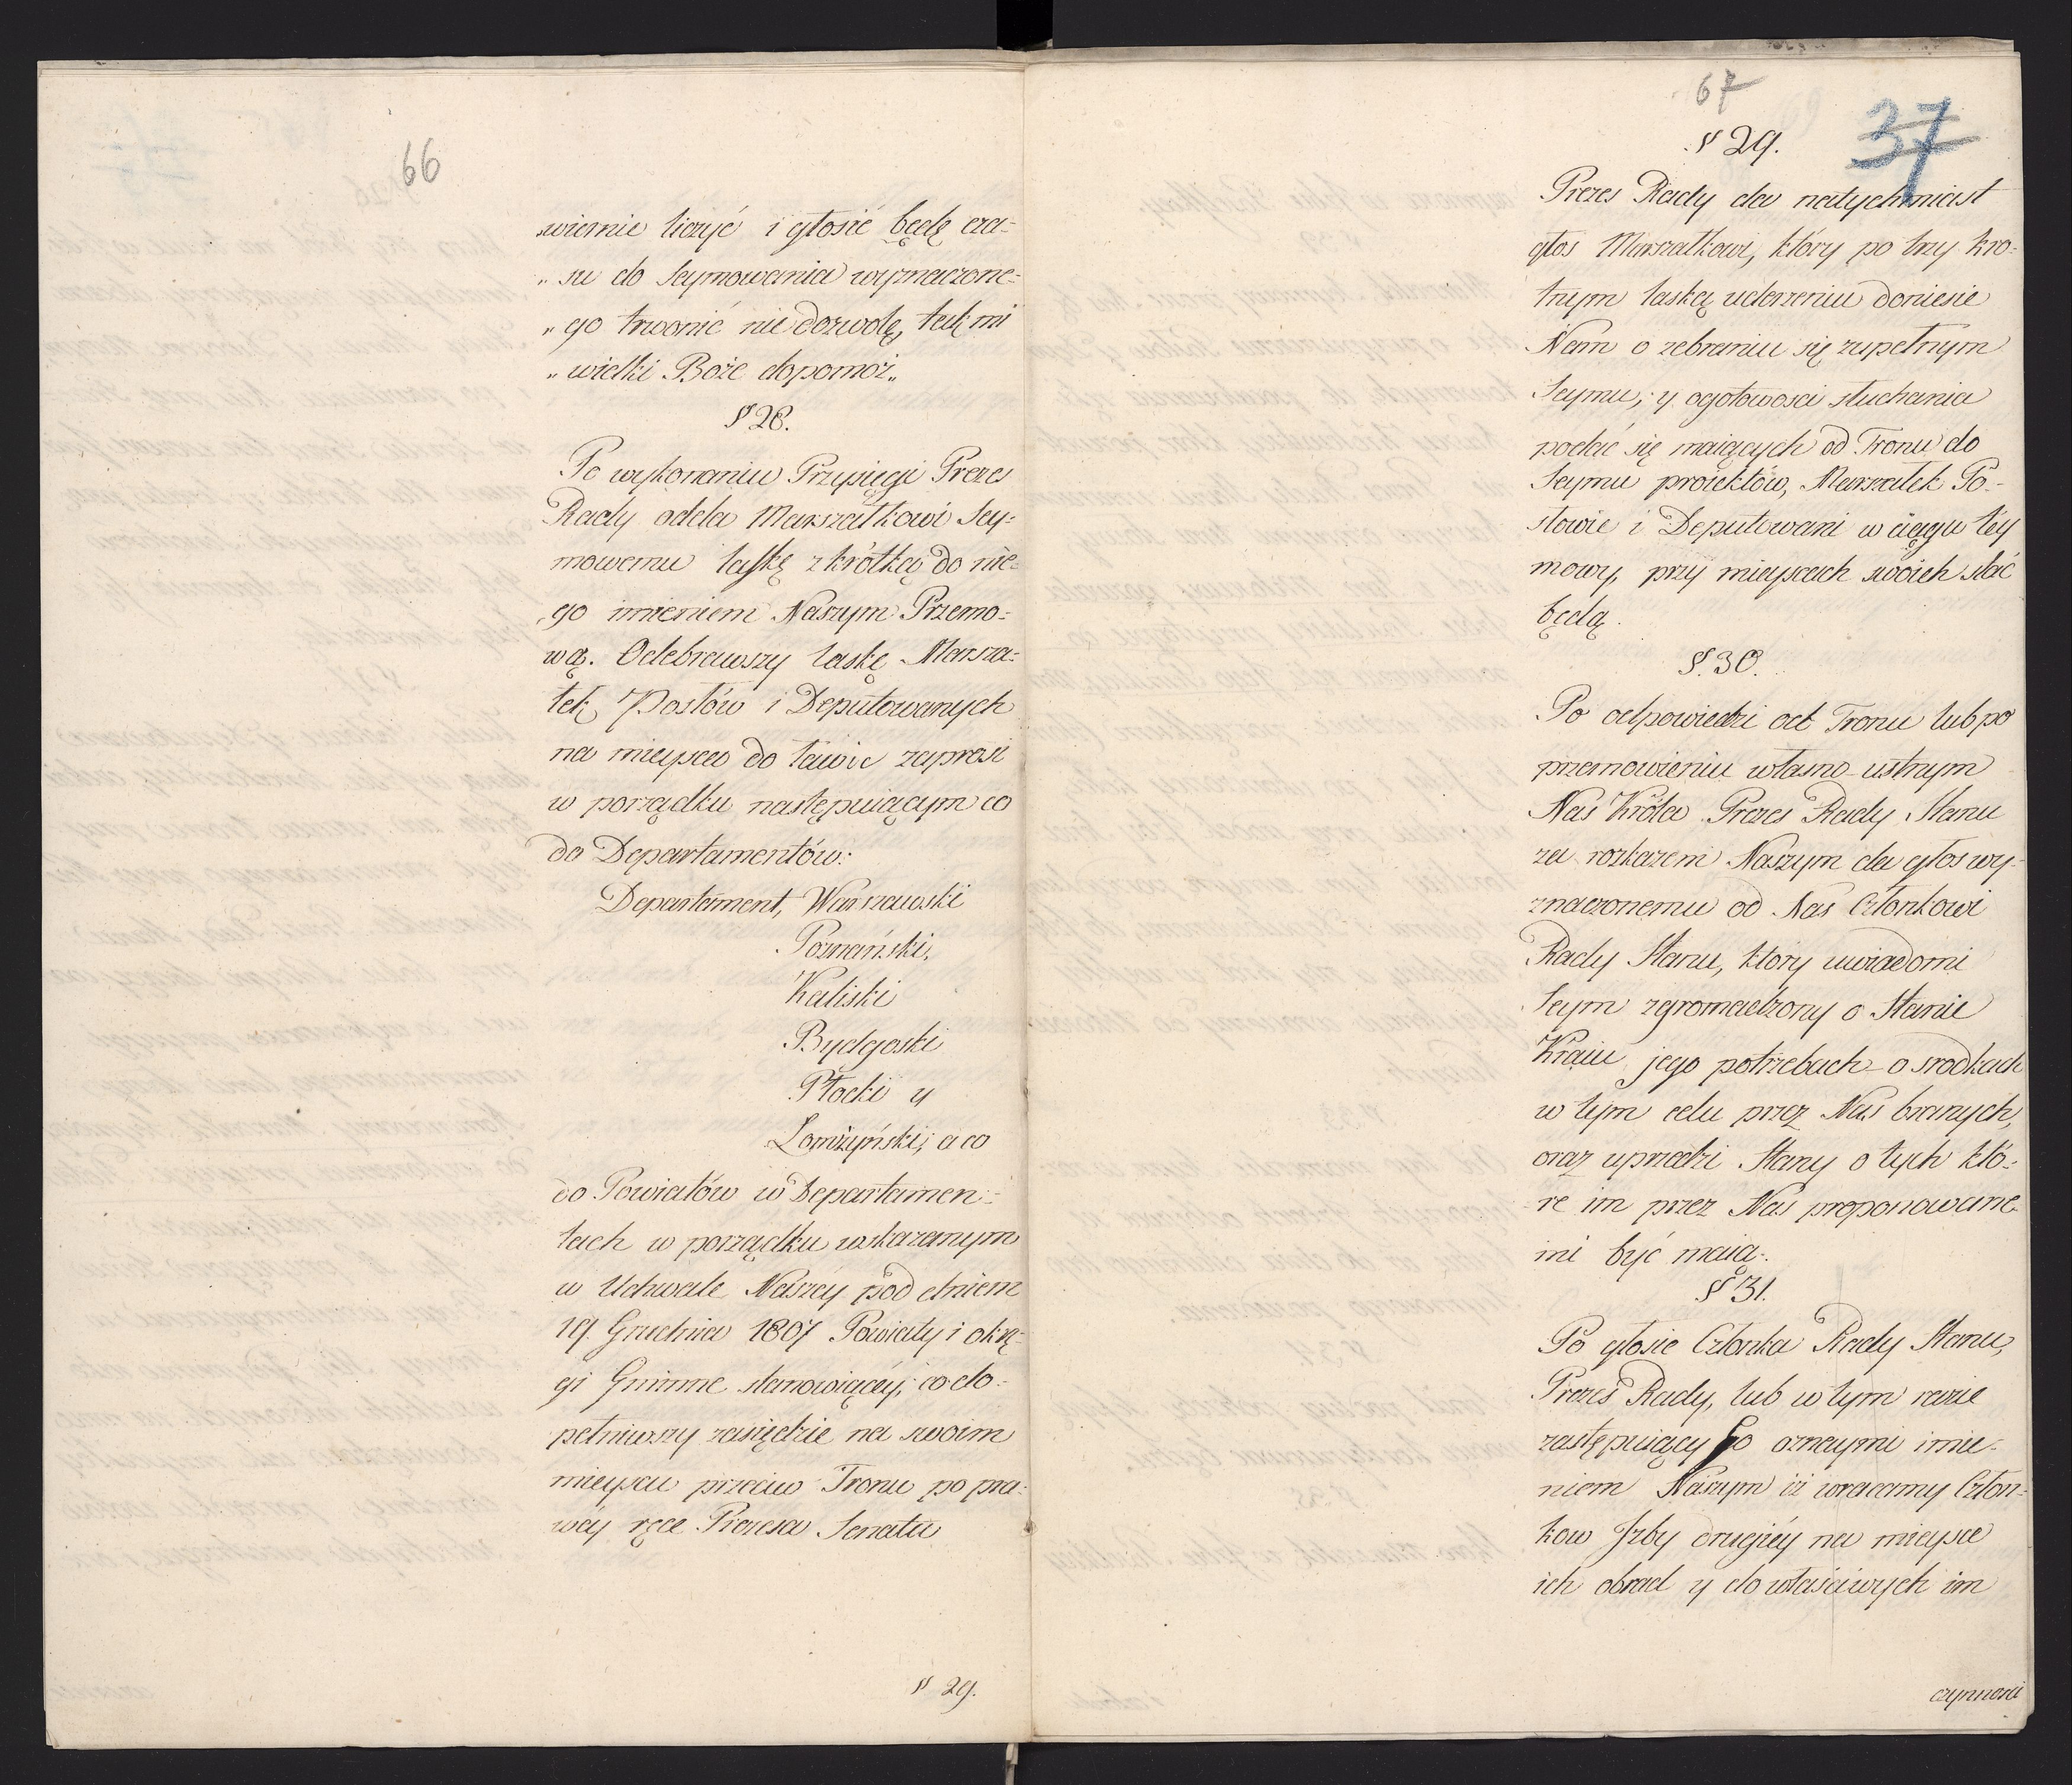 66
„wiernie liczyć i głosić będę cza-
„su do Seymowania wyznaczone-
„go trwonić nie dozwolę, tak mi
„wielki Boże dopomoż„
§ 28.
Po wykonaniu Przysięgi Prezes
Rady odda Marszałkowi Sey-
mowemu laskę z krótką do nie-
go imieniem Naszym Przemo-
wą. Odebrawszy laskę Marsza-
łek Posłów i Deputowanych
na mieysca do ławic zaprosi
w porządku następuiącym co
do Departamentów:
Departament, Warszawski
Poznański,
Kaliski
Bydgoski
Płocki y
Łomżyński; a co
do Powiatów w Departamen-
tach w porządku wskazanym
w Uchwale Naszéy pod dniem
19. Grudnia 1807 Powiaty i okrę-
gi Gminne stanowiącéy; co do-
pełniwszy zasiędzie na swoim
mieyscu przeciw Tronu po pra-
wéy ręce Prezesa Senatu
§ 29.
67
37
§ 29.
Prezes Rady da natychmiast
głos Marszałkowi, który po trzy kro-
tnym laską uderzeniu doniesie
Nam o zebraniu się zupełnym
Seymu, y o gotowosci słuchania
podać się maiących od Tronu do
Seymu proiektów, Marszałek Po-
słowie i Deputowani w ciągu téy
mowy, przy mieyscach swoich stać
będą.
§. 30.
Po odpowiedzi od Tronu lub po
przemowieniu własno-ustnym
Nas Króla Prezes Rady Stanu
za rozkazem Naszym da głos wy-
znaczonemu od Nas Członkowi
Rady Stanu, który uwiadomi
Seym zgromadzony o Stanie
Kraiu jego potrzebach o srodkach
w tym celu przez Nas branych,
oraz uprzedzi Stany o tych któ-
re im przez Nas proponowane-
mi być maią.
§ 31.
Po głosie Członka Rady Stanu,
Prezes Rady, lub w tym razie
zastępuiący Go oznaymi imie-
niem Naszym iż wracamy Człon-
kow Jzby drugiéy na mieysce
ich obrad y do właściwych im
czynnosci